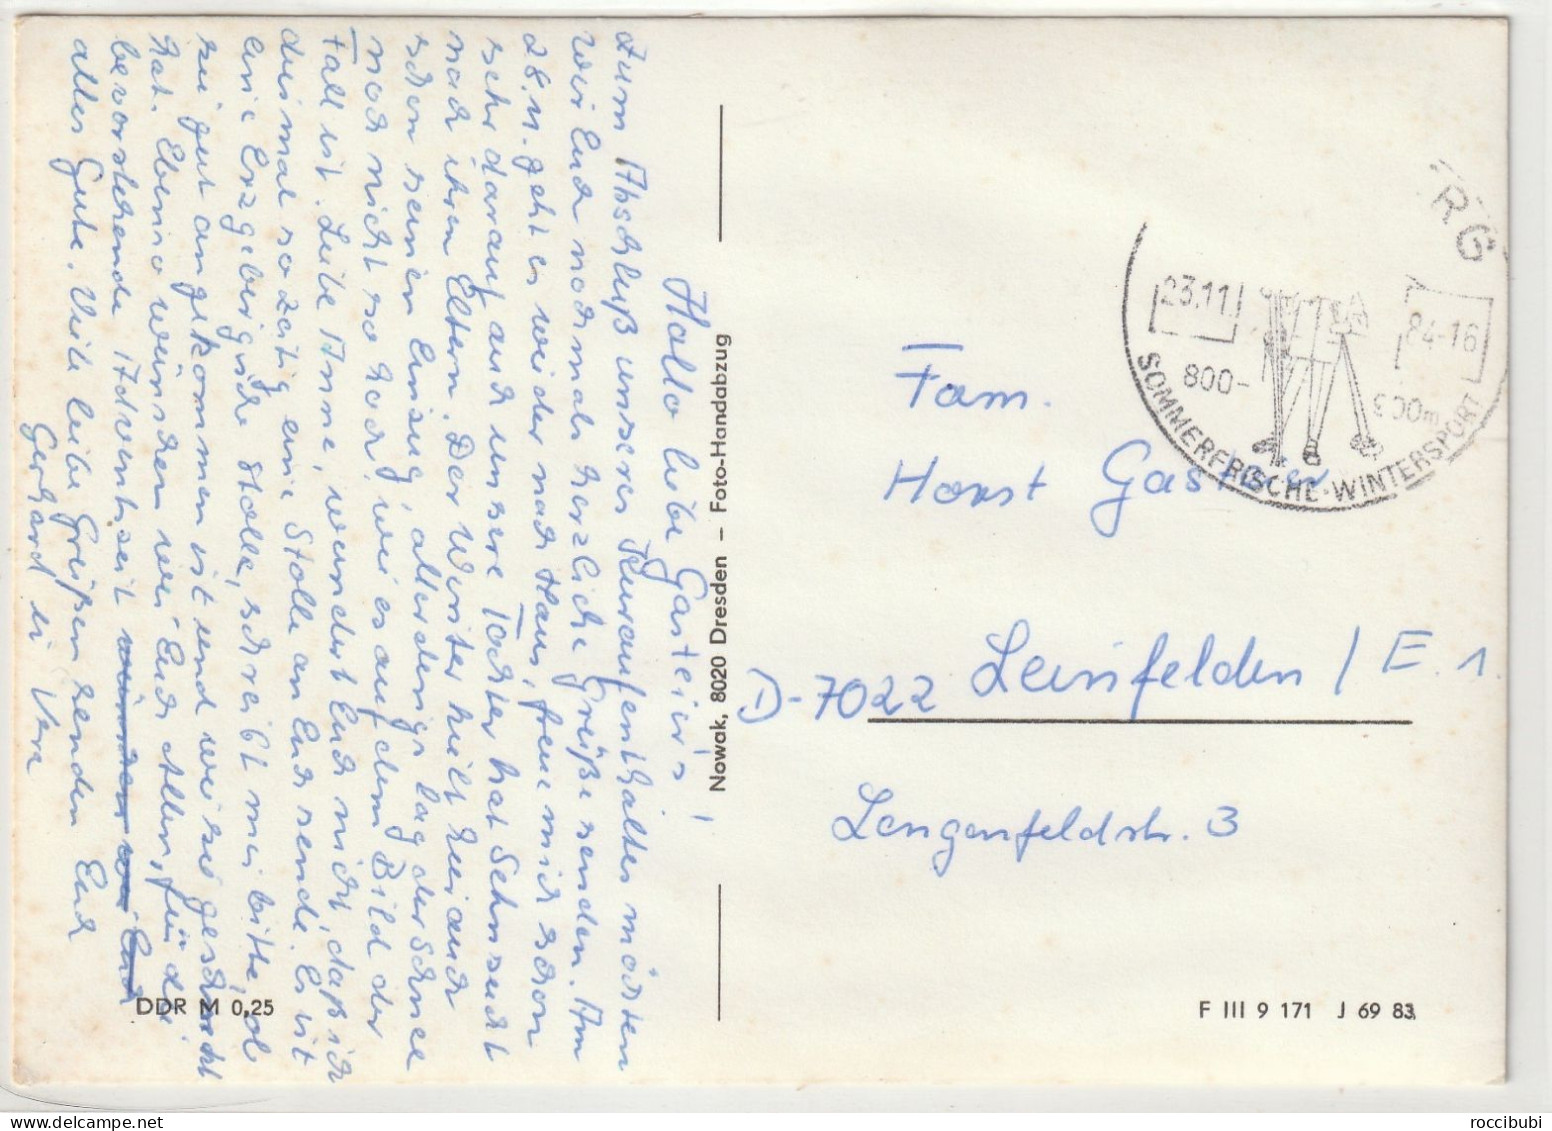 Hallo liebe Gasteiris!
Zum Abschluß unseres Kuraufenthaltes möchten
wir Euch nochmals herzliche Grüße senden. Am
28.11. geht es wieder nach Haus, freue mich schon
sehr darauf auch unsere Tochter hat Sehnsucht
nach ihren Eltern. Der Winter hielt hier auch
schon seinen Einzug, allerdings lag der Schnee
noch nicht so hoch, wie es auf dem Bild der
Fall ist. Liebe Anne, wundert Euch nicht, daß ich
diesmal so zeitig eine Stolle an Euch sende. Es ist
eine Erzgebirgische Stolle, schreibt mir bitte, ob
sie gut angekommen ist und wie sie geschmeckt
hat. Ebenso wünschen wir Euch Allen, für die
bevorstehende Adventszeit wünschen wir Euch
alles Gute. Viele liebe Grüßen senden Euch
Gerhard u. Vera
Nowak, 8020 Dresden – Foto-Handabzug
DDR M 0,25
RG
23.11.
84-16
800-
900m
SOMMERFRISCHE·WINTERSPORT
Fam.
Horst
D-7022 Leinfelden / E. 1
Lengenfeldstr. 3
F III 9 171 J 69 83
roccibubi